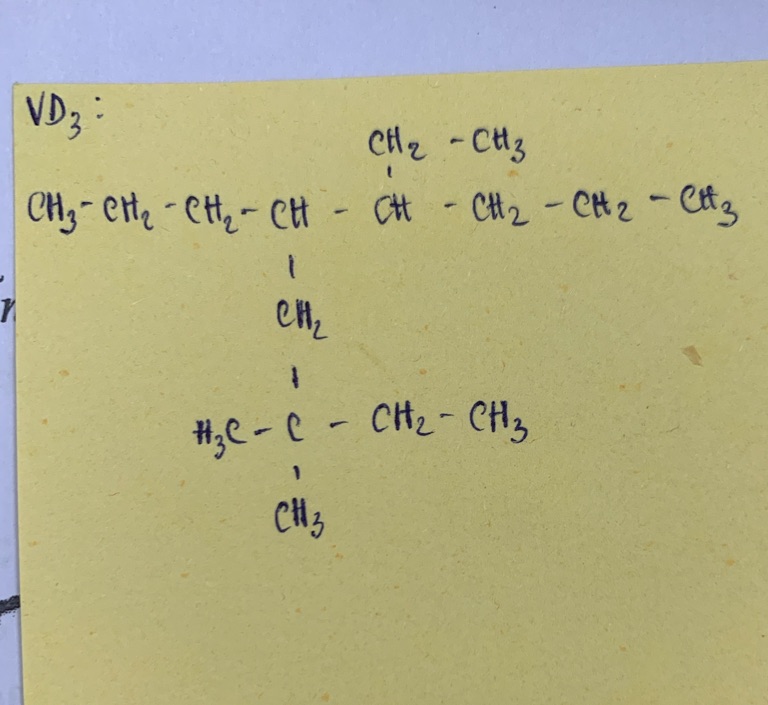 VD₃:
CH₂ - CH₃
CH₃ - CH₂ - CH₂ - CH - CH - CH₂ - CH₂ - CH₃
CH₂
H₃C - C - CH₂ - CH₃
CH₃